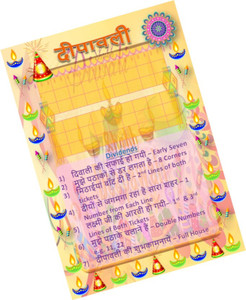 दीपावली
Dividends
1) दिवाली की सफाई हो गयी – Early Seven
2) मुझे पटाको से डर लगता है – 8 Corners
3) मिठाईया बाँट दी है – 2nd Lines of both
tickets
4) दीयों से जगमगा रहा है सारा बाहर – 1
Number from Each Line
5) लक्ष्मी जी की आरती हो गयी – 1st & 3rd
Lines of Both Tickets
6) मुझे पटाके चलाने है – Double Numbers
6, 11, 22
7) दीपावली की शुभकामनाये – Full House